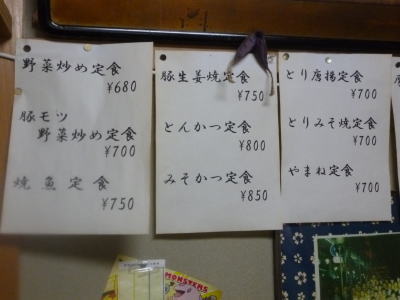 野菜炒め定食
¥680
豚モツ
野菜炒め定食
¥700
焼魚定食
¥750
豚生姜焼定食
¥750
とんかつ定食
¥800
みそかつ定食
¥850
とり唐揚定食
¥700
とりみそ焼定食
¥700
やまね定食
¥700
MONSTERS